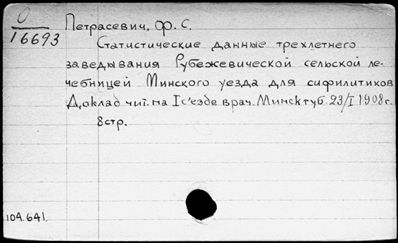 О
16693
Петрасевич, Ф. С.
Статистические данные трехлетнего
заведывания Рубежевической сельской ле-
чебницей Минского уезда для сифилитиков
Доклад чит. на I с'езде врач. Минск губ. 23/I 1908 г.
8 стр.
104.641.